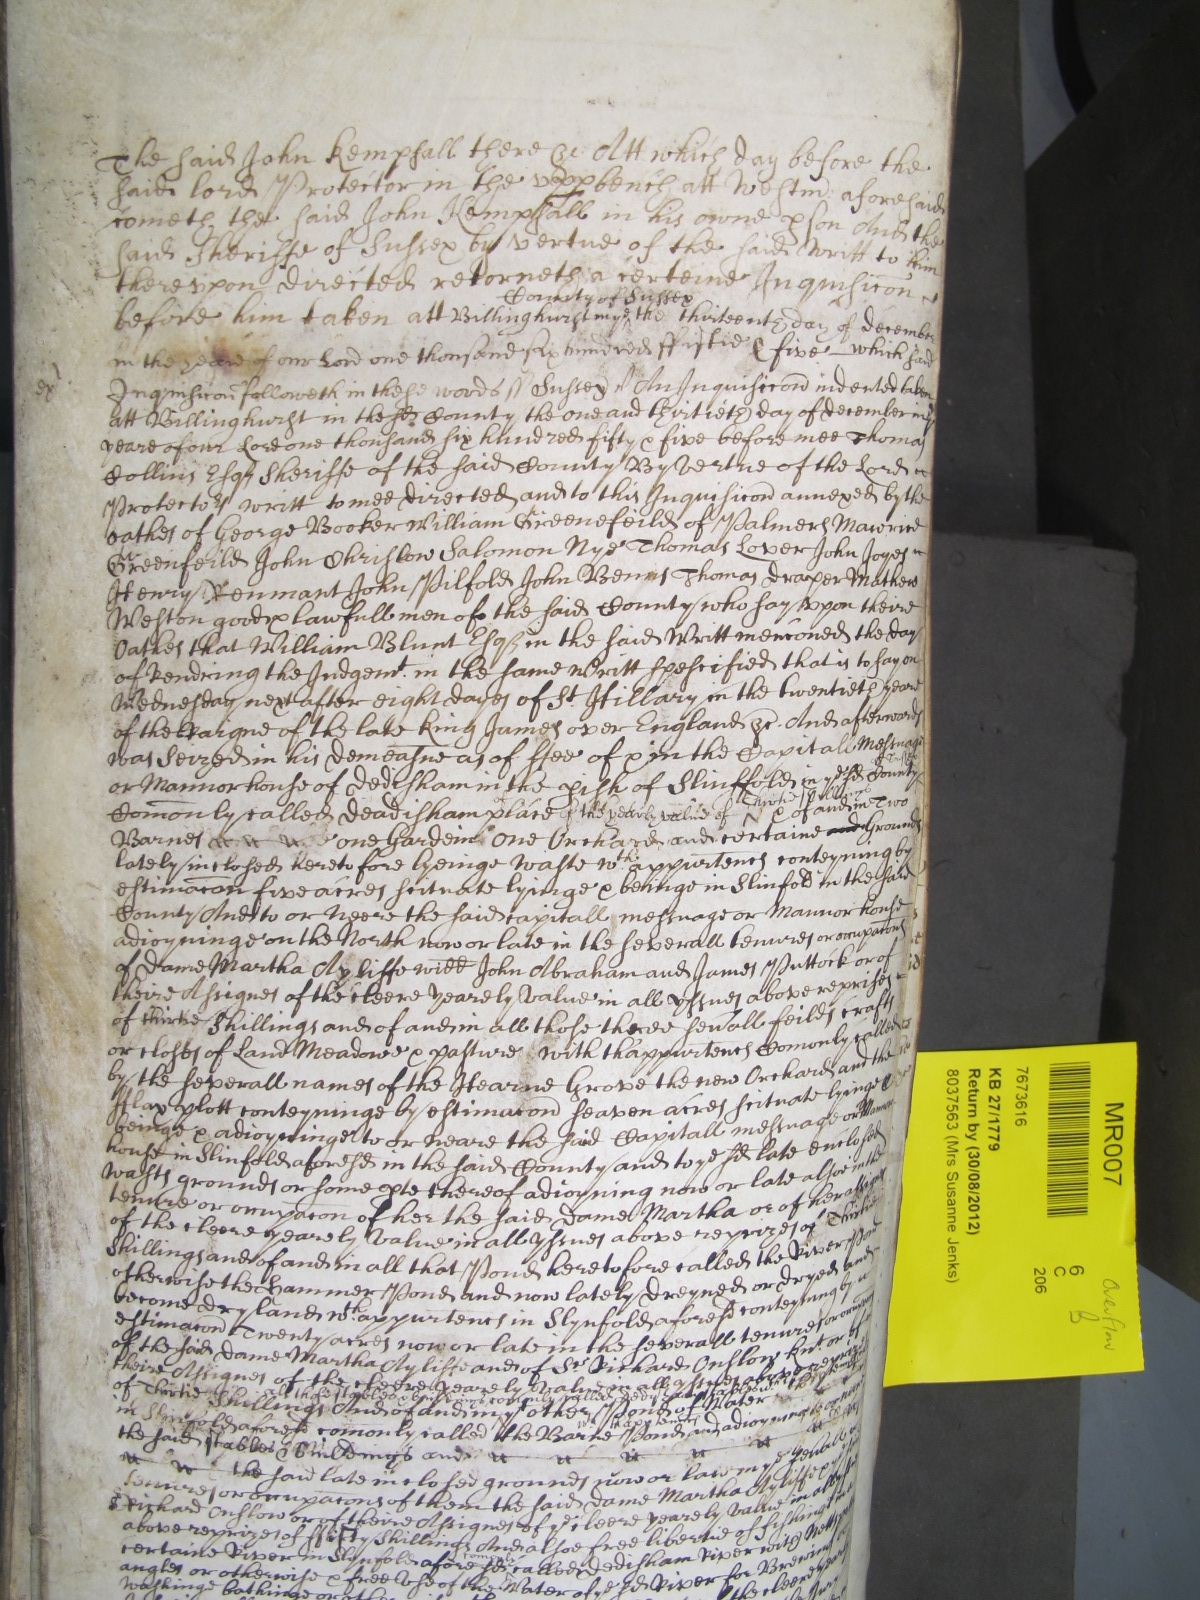 The said John Kempsall there &c Att which day before the
said lord Protector in the vpp bench att Westm aforesaid
cometh the said John Kempsall in his owne pson And the
said Sheriffe of Sussex by vertue of the said Writt to him
therevpon directed retorneth a certeine Inquisicon
County of Sussex
before him taken att Billinghurst in ye the thirteenth day of december
in the yeare of our Lord one thousand six hundred ffiftie & five which said
Inquisicon followeth in these words Sussex An Inquisicon indented taken
att Billinghurst in the sd County the one and thirtieth day of december in ye
yeare of our Lord one thousand six hundred fifty & five before mee Thomas
Collins Esqr Sheriffe of the said County By vertue of the Lord
Protectors writt to mee directed and to this Inquisicon annexed by the
oathes of George Booker William Greenefeild of Palmers Maurice
Greenfeild John Salomon Nye Thomas Lover John Joyes
Henry John Pilfold John Thomas draper Mathew
Weston good & lawfull men of the said County who say vpon theire
Oathes that William Blunt Esqr in the said Writt menconed the day
of Rendring the Judgemt. in the same writt specified that is to say on
Wednesday next after eight dayes of St. Hillary in the twentieth yeare
of the Raigne of the late King James over England &c. And afterwards
was Seized in his demeasne as of ffee of & in the Capitall Messuage
or Mannor house of Dedisham in the pish of Slinffold in ye sd County
Comonly called Deadisham place of the yearly value of & of and in Two
Barnes one Gardein one Orchard and certaine and Grounds
lately inclosed heretofore beinge waste wth appurtences conteyning by
estimacon five acres scituate lyinge & beinge in Slinfold in the said
County And to or Neere the said capitall messuage or Mannor house
adioyninge on the North now or late in the severall tenures or occupacons
of Dame Martha Ayliffe widd John Abraham and James Puttock or of
theire Assignes of the cleere yearely value in all yssues above reprises
of thirtie Shillings and of and in all those three sevall feilds crafts
or closes of Land Meadowe & pasture with thappurtences Comonly called
by the severall names of the Hearne Grove the new Orchard and the
fflax plott conteyninge by estimacon seaven acres scituate lyinge
beinge & adioyninge to or neare the said Capitall messuage or Mannor
house in Slinfold aforesd in the said County and to ye sd late enclosed
Wasts grounds or some pte thereof adioyning now or late alsoe in the
tenure or occupacon of her the said Dame Martha or of her assignes
of the cleere yearely value in all yssues above reprizes of Thirtie
Shillings and of and in all that Pond heretofore called the River Pond
otherwise the Hammer Pond and now lately dreyned or dryed and
become dry land wth. appurtences in Slynfold aforesd conteyning by
estimacon Twenty acres now or late in the severall tenures or
of the said Dame Martha Ayliffe and of Sr Richard Onslow Knt. or of
theire Assignes of the cleere yearely value in all yssues above reprizes
of Thirtie Shillings And of and in ye other Pond of Water
in Slinfold aforesd comonly called the Barne Pond and adioyning to
the said stables & Buildings and
the said late inclosed grounds now or late in ye
tenures or occupacons of them the said Dame Martha Ayliffe &
Richard Onslow or of theire Assignes of ye cleere yearely value in all
above reprizes of ffifty Shillings And alsoe free libertie of fishing
certaine River in Slynfold aforesd called Dedisham River with Netts
angles or otherwise & free vse of the Water of ye sd River for Brewing
Washinge bathinge or other the cleere
MR007
7673616
KB 27/1779
Return by (30/08/2012)
8037563 (Mrs Susanne Jenks)
6
C
206